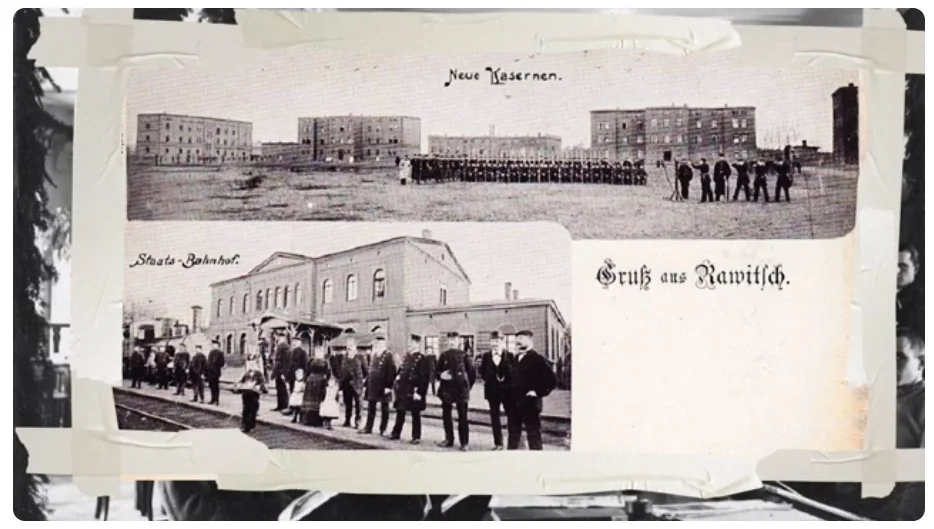 Neue Kasernen.
Staats-Bahnhof.
Gruß aus Rawitsch.